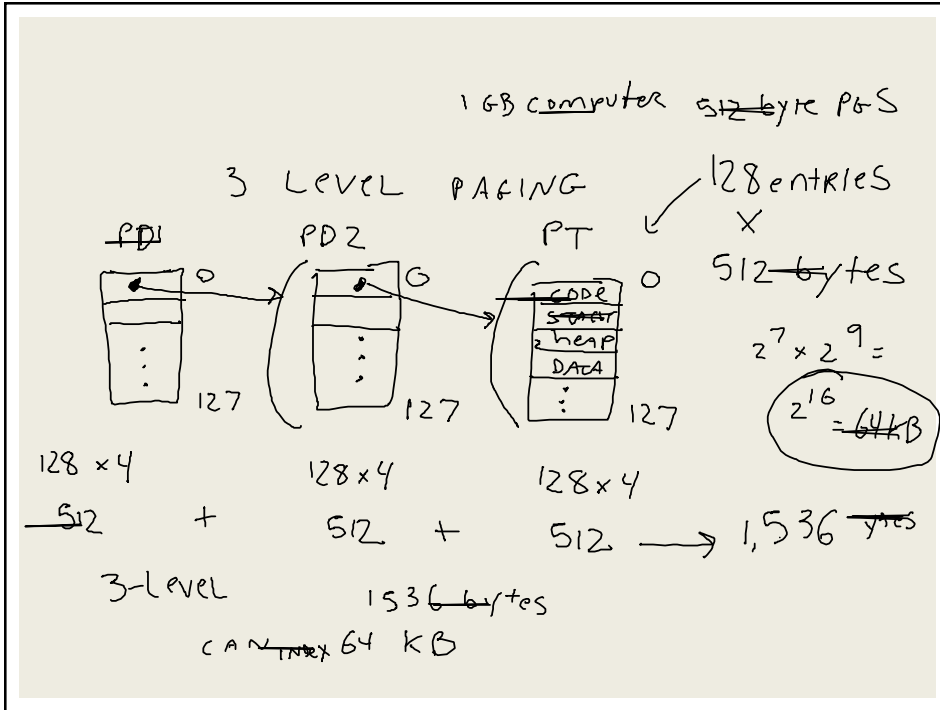 1 GB computer 512 byte PGS
3 LEVEL PAGING
128 entries
X
512 bytes
2^7 x 2^9 =
2^16
= 64 kB
PD1
0
127
PD2
0
127
PT
0
CODE
STACK
heap
DATA
127
128 x 4
128 x 4
128 x 4
512 + 512 + 512 → 1,536 ytes
3-Level
1536 bytes
CAN INDEX 64 KB